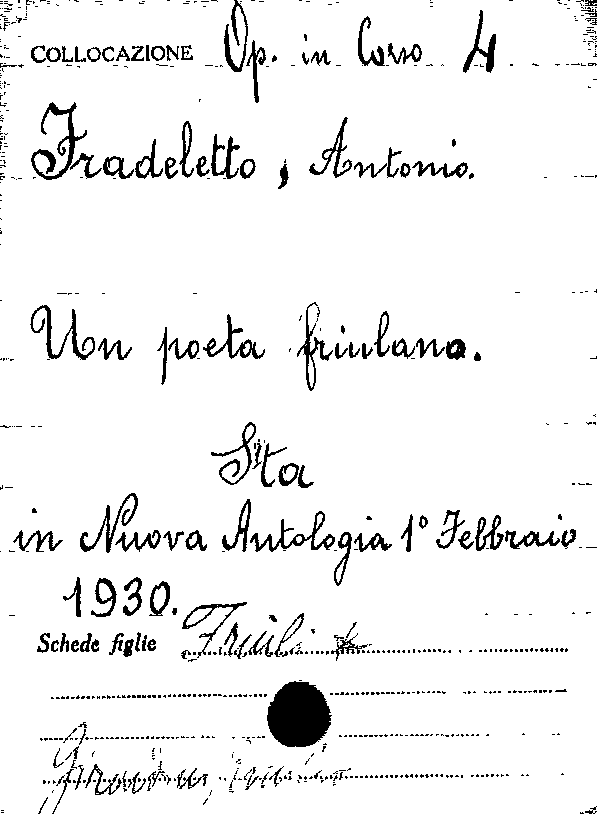 COLLOCAZIONE Op. in Corso 4
Fradeletto, Antonio.
Un poeta friulano.
Sta
in Nuova Antologia 1° Febbraio
1930.
Schede figlie Friuli